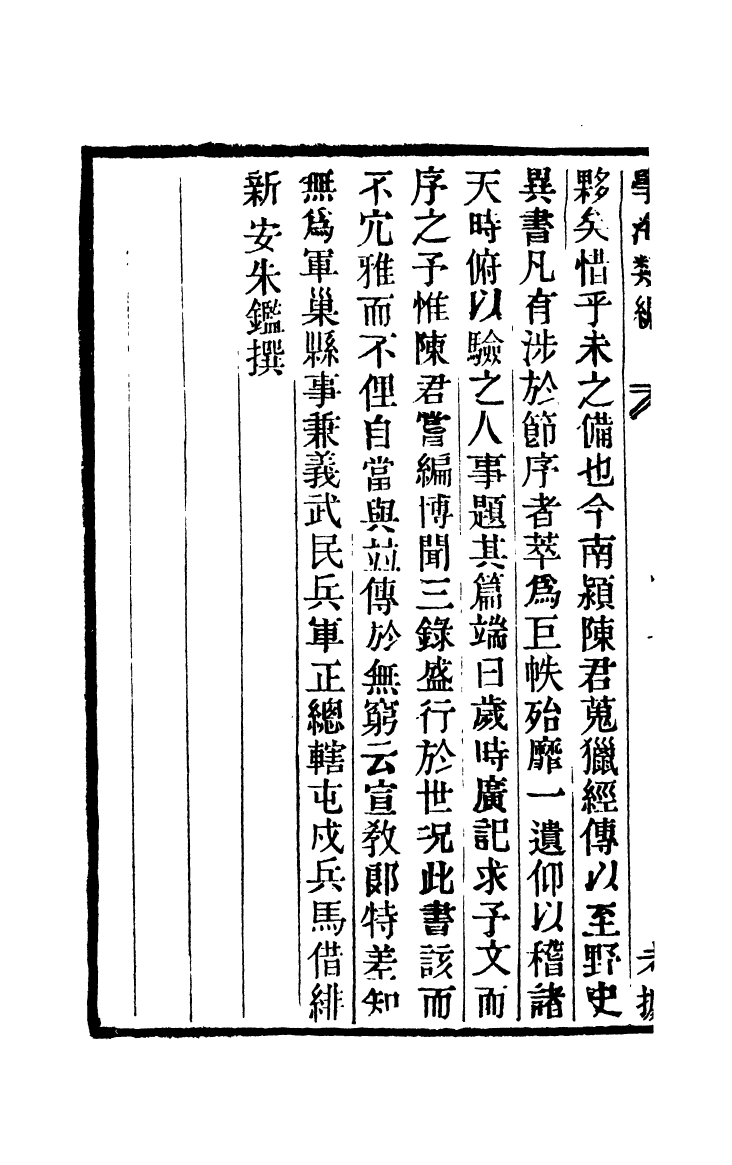 學海類編
夥矣惜乎未之備也今南潁陳君蒐獵經傳以至野史
異書凡有涉於節序者萃爲巨帙殆靡一遺仰以稽諸
天時俯以驗之人事題其篇端曰歲時廣記求予文而
序之予惟陳君嘗編博聞三錄盛行於世況此書該而
不冗雅而不俚自當與並傳於無窮云宣教郎特差知
無爲軍巢縣事兼義武民兵軍正總轄屯戍兵馬借緋
新安朱鑑撰